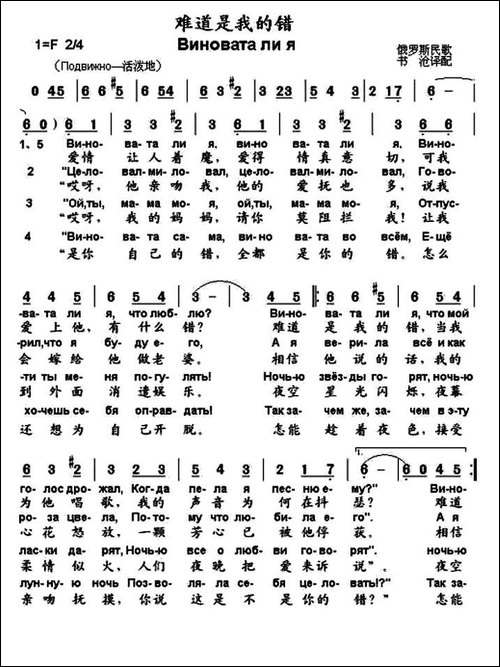 难道是我的错
1=F 2/4 Виновата ли я 俄罗斯民歌
(Подвижно—活泼地) 书 沧译配
0 45 | 6 6 #5 | 6 5 4 | 6 3 #2 | 3 2 3 4 | 5 5 3 | 2 17 | 6 – |
6 0) | 6 3 #2 | 3 6 | 6 3 #2 | 3 6 |
1、5 Ви-но- ва-та ли я, ви-но ва-та ли я, Ви-но-
爱情 让 人 着 魔, 爱得 情 真 意 切, 可我
2 "Це-ло- вал-ми-ло- вал, це-ло- вал-ми-ло- вал, Го-во-
"哎呀, 他 亲 吻 我, 他的 爱 抚 也 多, 说我
3 "Ой,ты, ма-ма мо- я, ой,ты, ма-ма мо- я, От-пус-
"哎呀, 我 的 妈 妈, 请你 莫 阻 拦 我! 让我
4 "Ви-но- ва-та са- ма, ви-но ва-та во всём, Е-щё
"是你 自 己 的 错, 全都 是 你 的 错. 怎么
4 4 5 | 6 5 4 | 3 – | 3 4 5 :| 6 6 #5 | 6 5 4 |
-ва-та ли я, что люб- лю? Ви-но- ва-та ли я, что мой
爱 上 他, 有 什 么 错? 难道 是 我 的 错, 当我
-рил,что я бу-ду е- го, А я ве-ри-ла всё и как
会 嫁 给 他 做 老 婆。 相信 他 说 的 话, 我的
-ти ты ме- ня по-гу- лять! Ночь-ю звёз-ды го- рят, ночь-ю
到 外 面 消 遣 娱 乐。 夜空 星 光 闪 烁, 夜幕
хо-чешь се- бя оп-рав- дать! Так за- чем же, за- чем в э-ту
还 想 为 自 己 开 脱。 怎能 趁 着 夜 色, 接受
6 3 #2 | 3 2 3 4 | 5 5 3 | 2 1 7 | 6 – | 6 0 4 5 :|
го-лос дро- жал, Ког-да пе-ла я пес-ню е- му?" Ви-но-
为 他 唱 歌, 我的 声 音 为 何 在 抖 瑟? 难道
ро-за цве- ла, По-то- му что лю- би-ла е- го". А я
心 花 怒 放, 一颗 芳 心 已 被 他 俘 获。 相信
лас-ки да- рят, Ночь-ю все о люб- ви го-во- рят". ночь-ю
柔 情 似 火, 人们 夜 晚 把 爱 来 诉 说"。 夜空
лун-ну-ю ночь Поз-во- ля-ла се-бя це-ло- вать!?" Так за-
亲 吻 抚 摸, 你说 这 是 不 是 你 的 错?" 怎能